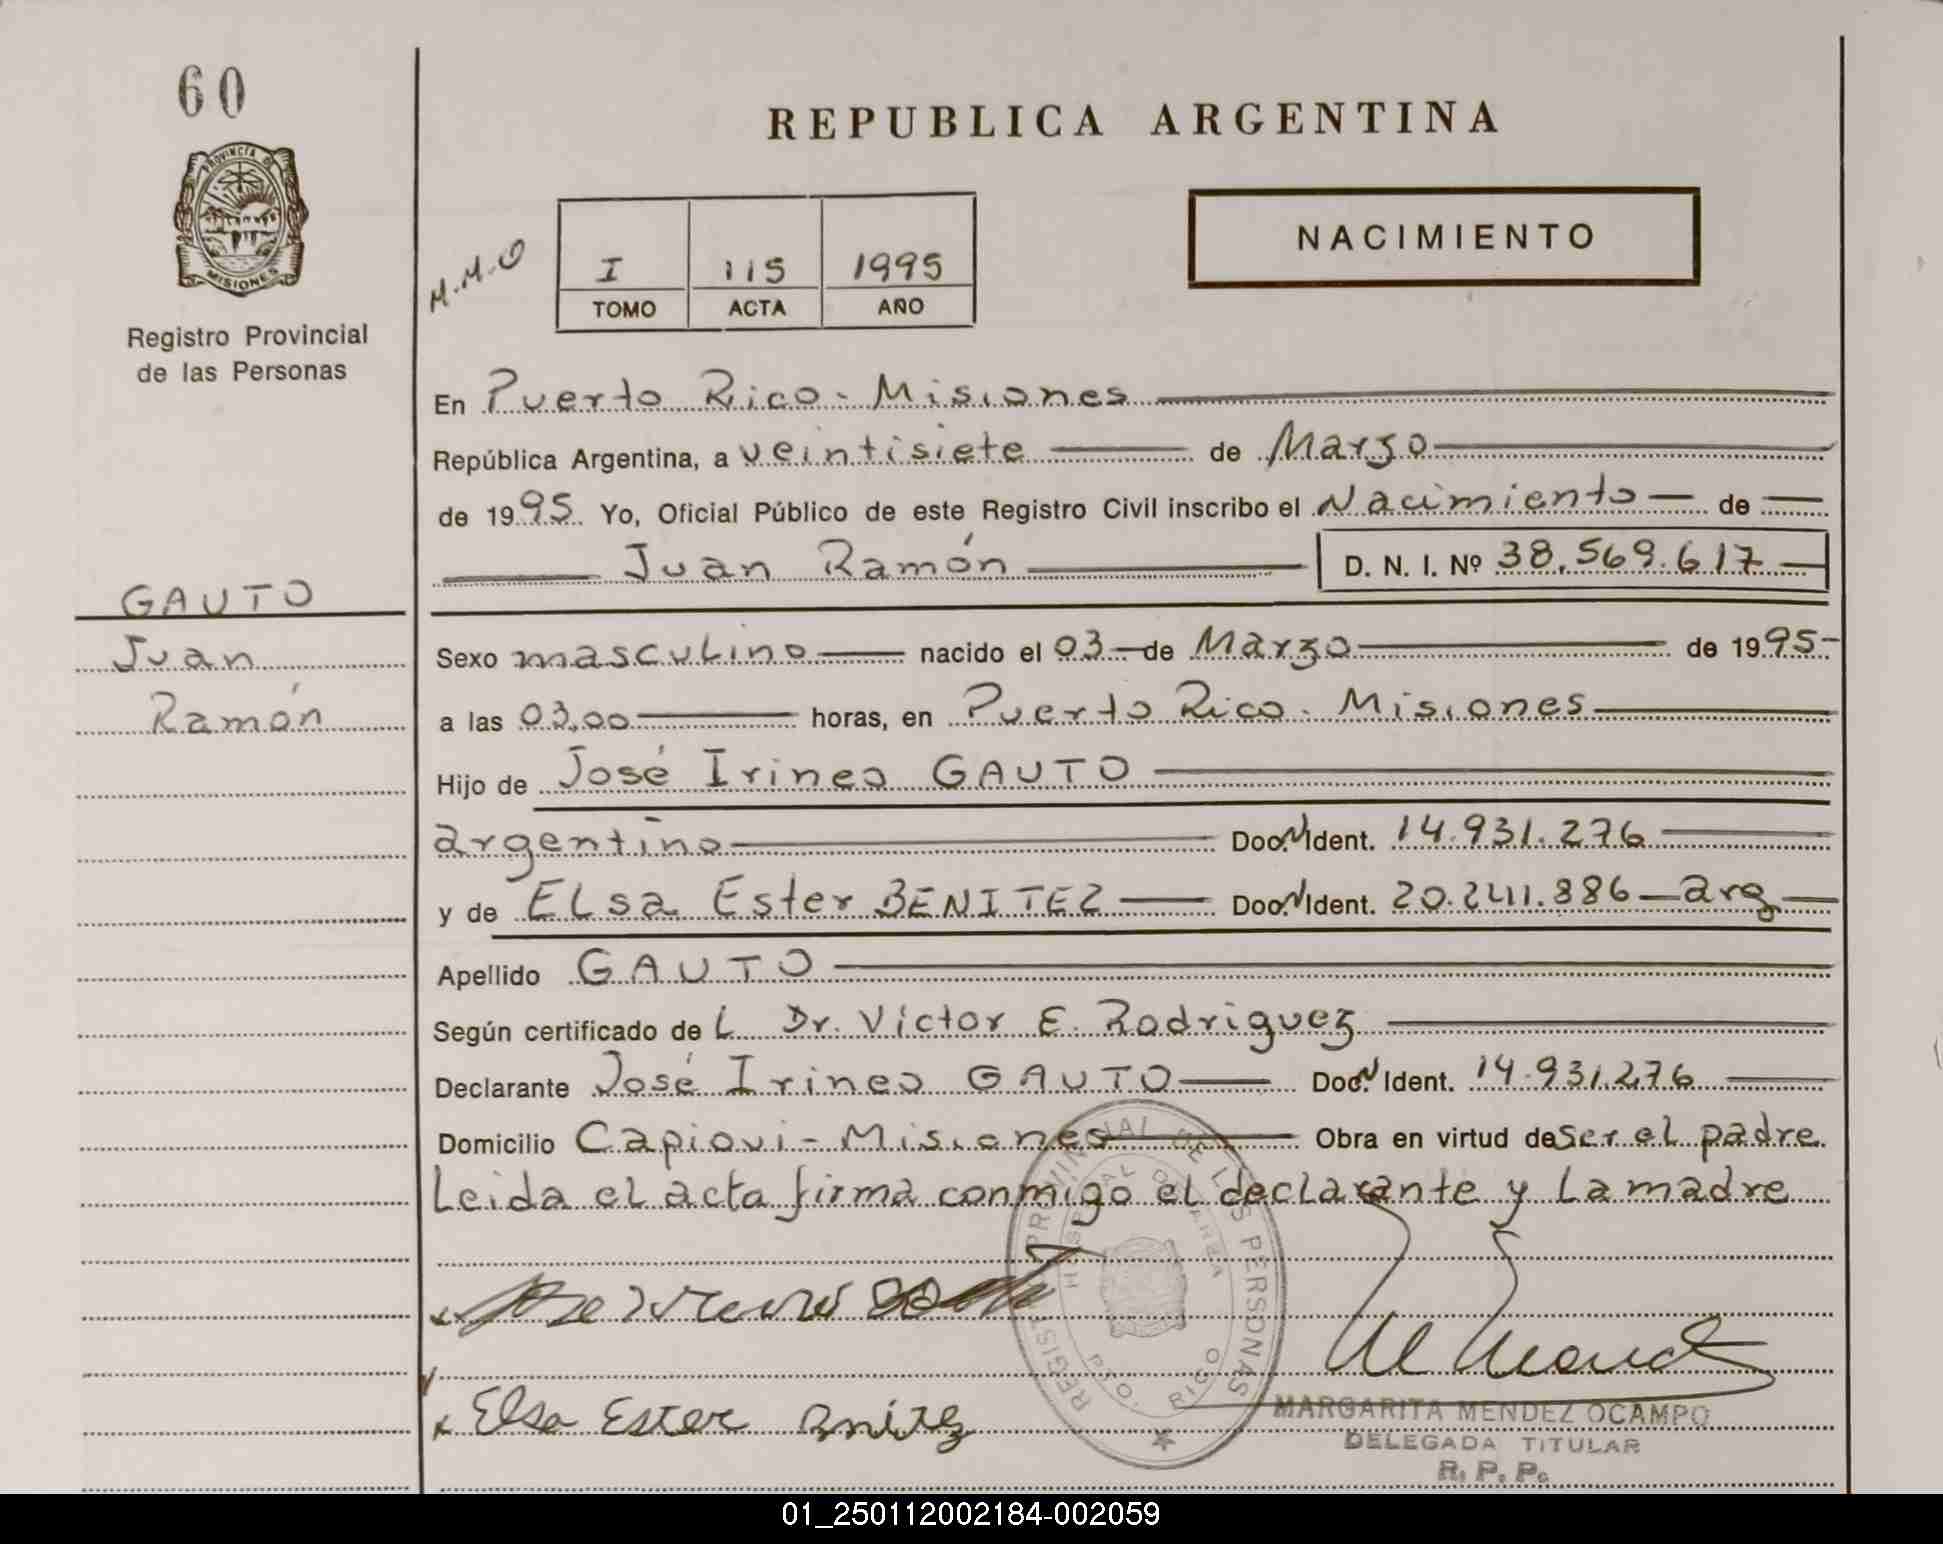 60
PROVINCIA DE
MISIONES
Registro Provincial
de las Personas
REPUBLICA ARGENTINA
M.M.O
I 115 1995
TOMO ACTA AÑO
NACIMIENTO
En Puerto Rico - Misiones
República Argentina, a veintisiete de Marzo
de 1995 Yo, Oficial Público de este Registro Civil inscribo el Nacimiento de
Juan Ramón D. N. I. Nº 38.569.617
GAUTO
Juan
Ramón
Sexo masculino nacido el 03 de Marzo de 1995
a las 03,00 horas, en Puerto Rico - Misiones
Hijo de José Irineo GAUTO
argentino Doc. N Ident. 14.931.276
y de Elsa Ester BENITEZ Doc. N Ident. 20.241.886 - arg
Apellido GAUTO
Según certificado de L Dr. Victor E. Rodriguez
Declarante José Irineo GAUTO Doc. N Ident. 14.931.276
Domicilio Capiovi - Misiones Obra en virtud de ser el padre
Leida el acta firma conmigo el declarante y la madre
REGISTRO PROVINCIAL DE LAS PERSONAS
HOSPITAL DE AREA
PTO. RICO
Elsa Ester Benitez
MARGARITA MENDEZ OCAMPO
DELEGADA TITULAR
R. P. P.
01_250112002184-002059